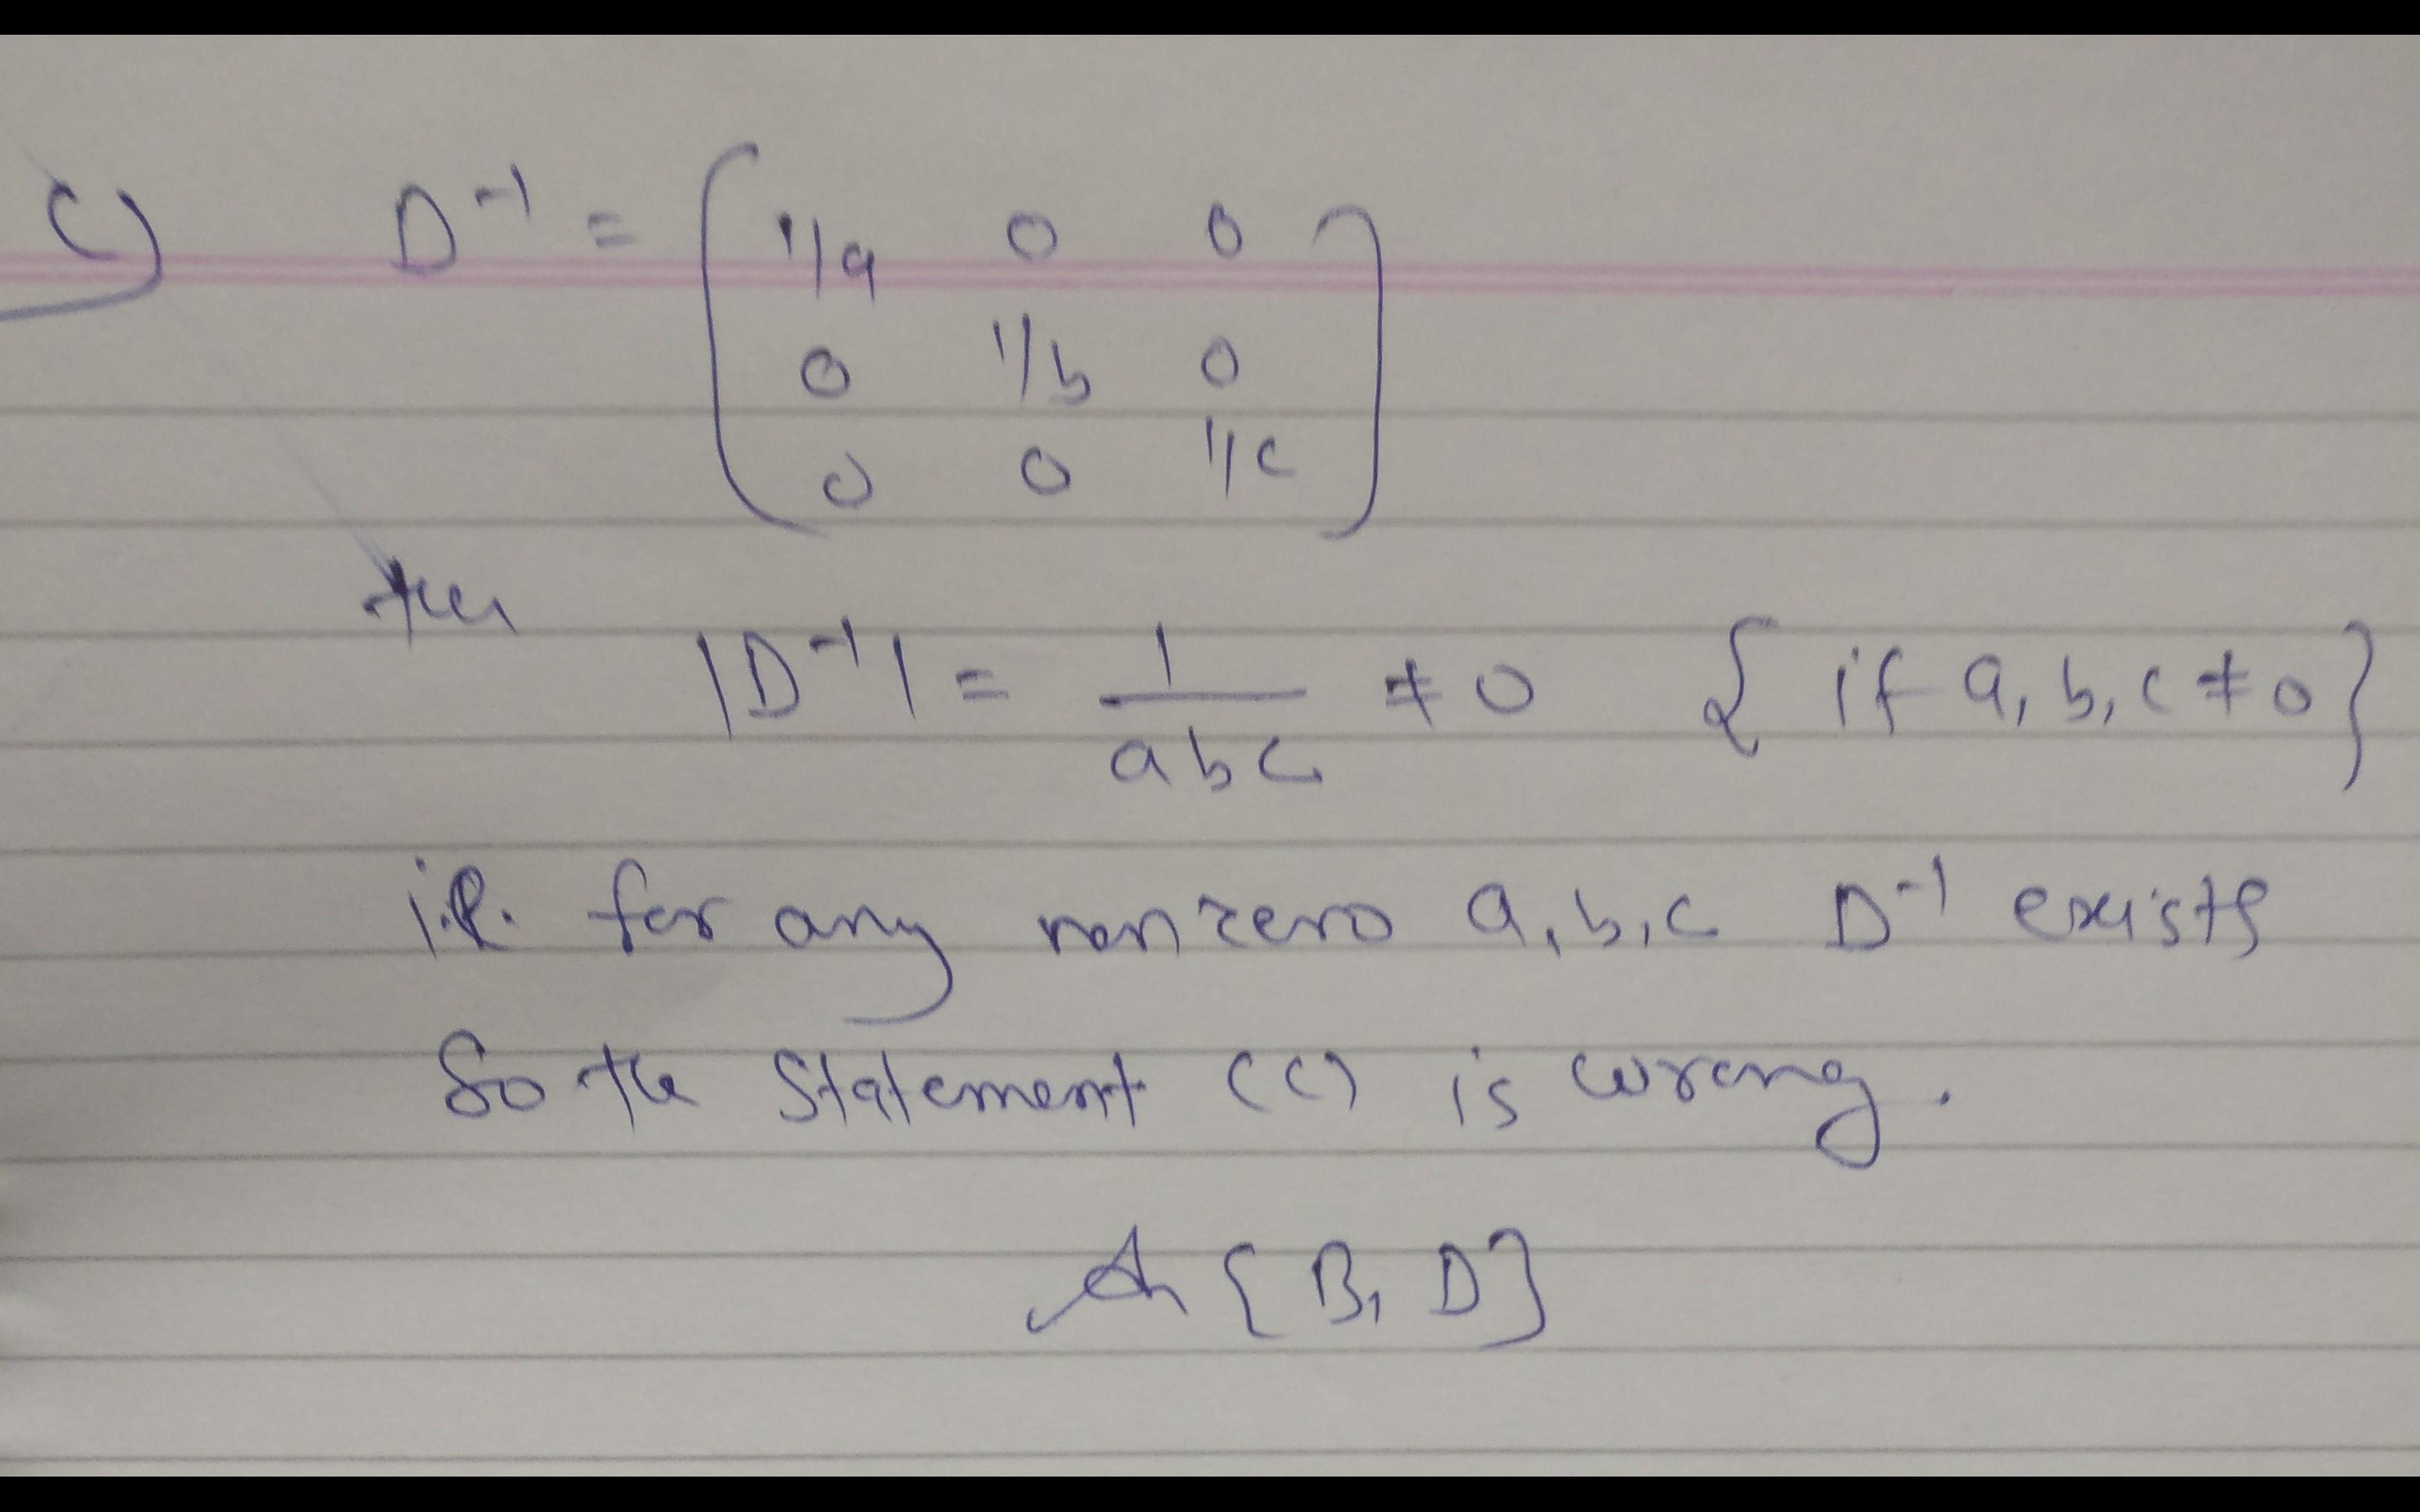 C) D⁻¹ = ( 1/a 0 0
0 1/b 0
0 0 1/c )
then
|D⁻¹| = 1/abc ≠ 0 { if a, b, c ≠ 0 }
i.e. for any nonzero a, b, c D⁻¹ exists
So the Statement (C) is wrong.
{ B, D }